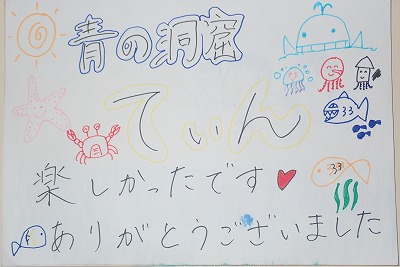 青の洞窟
てぃん
楽しかったです♥
ありがとうございました